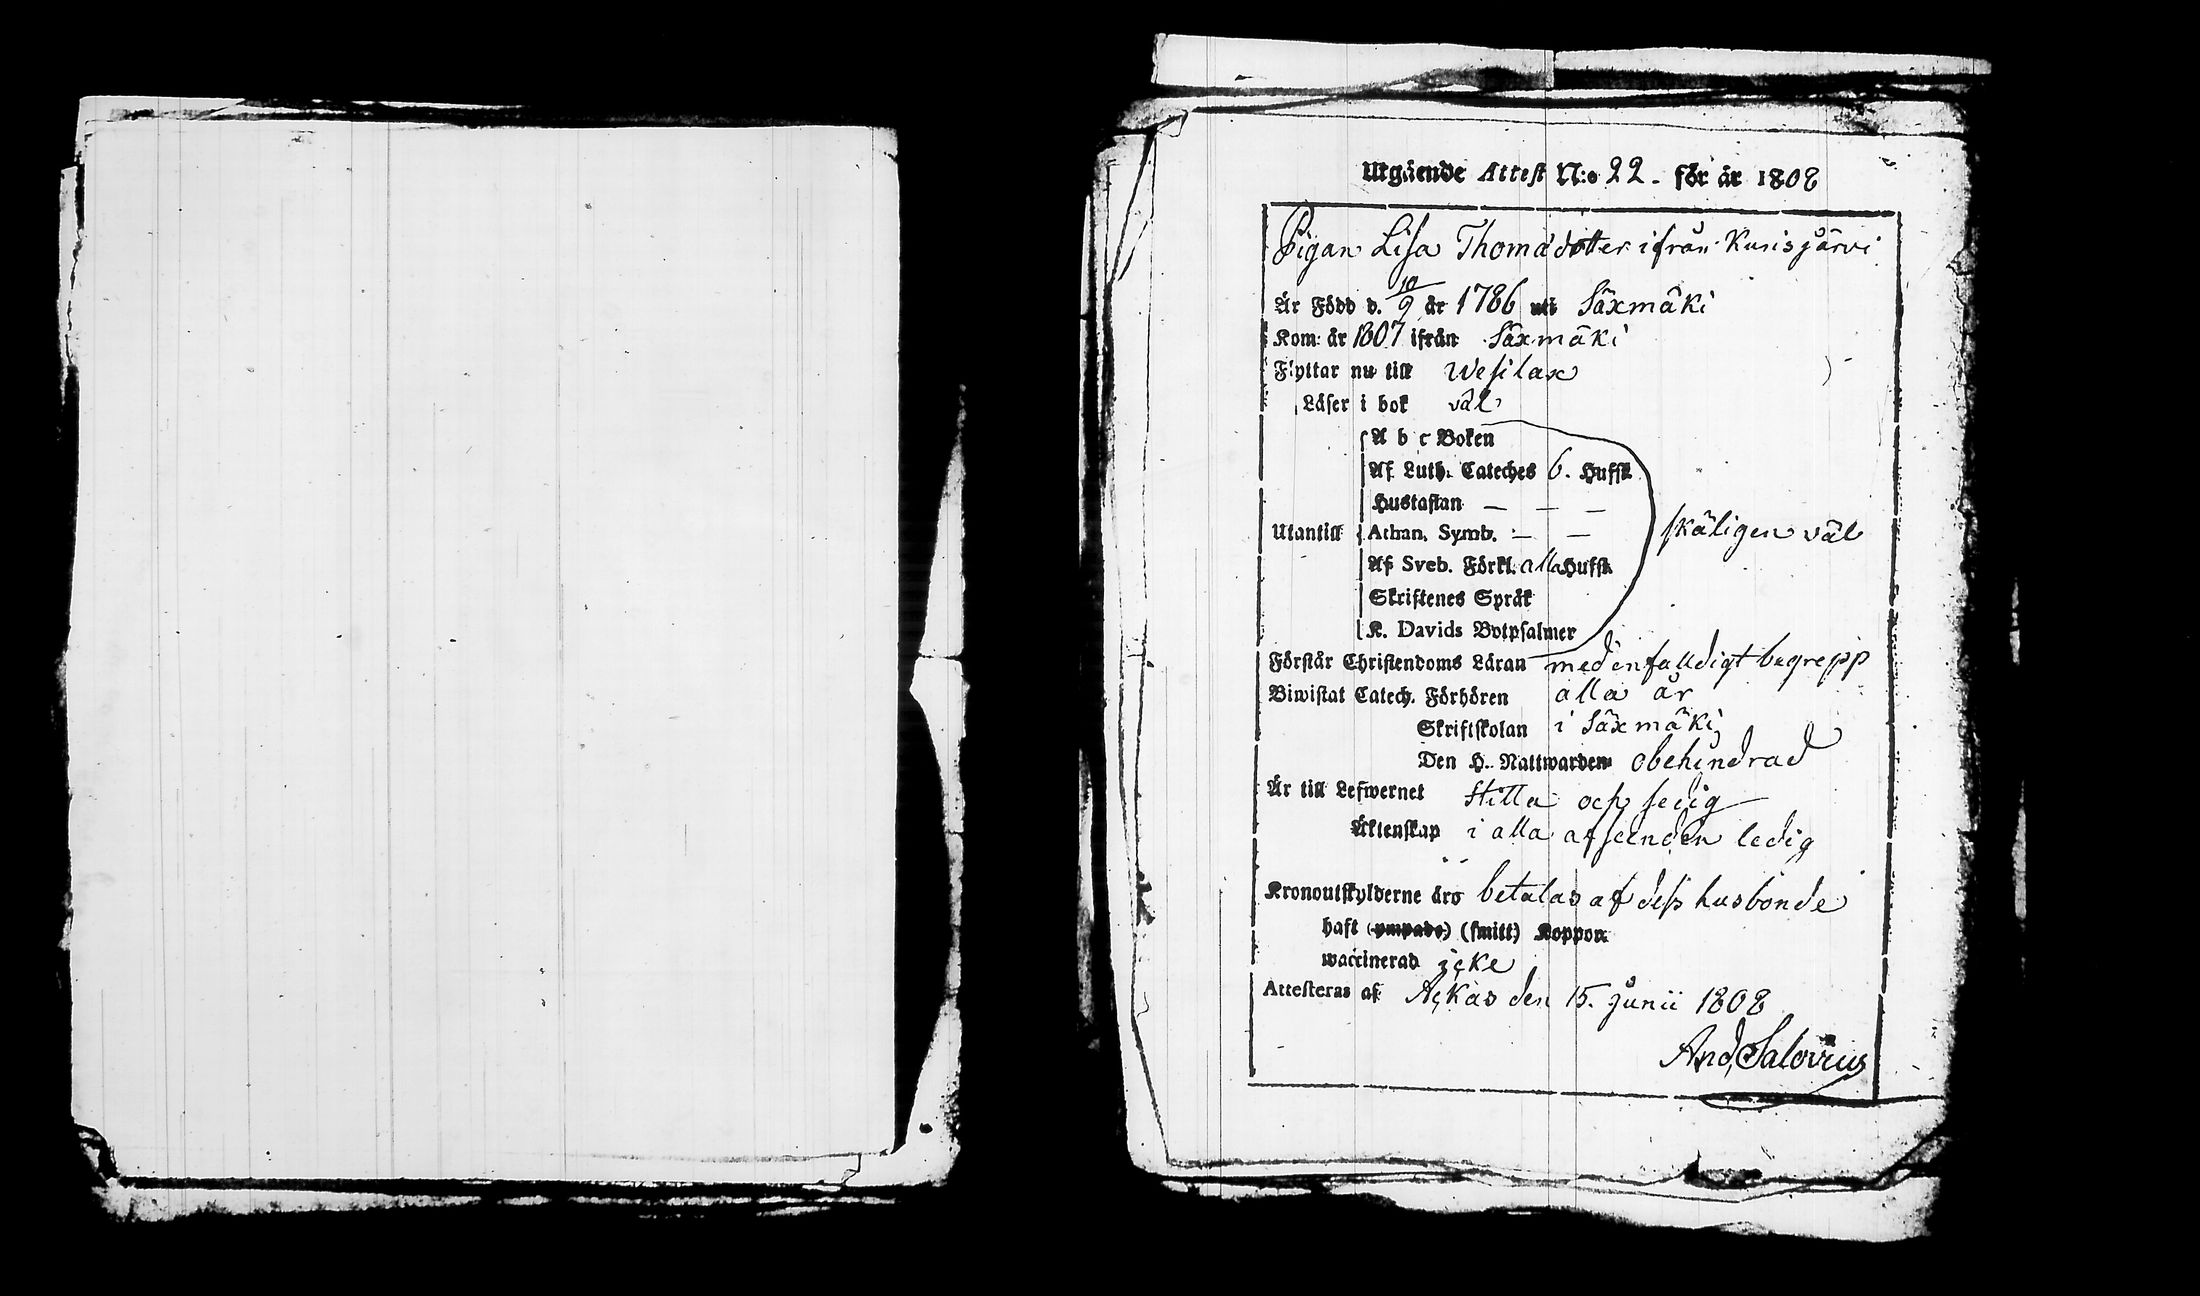 Utgående Attest N:o 22. för år 1808
Pigan Lisa Thomädotter ifrån Kurisjärvi
Är Född d. 10/9 år 1786 uti Säxmäki
Kom: år 1807 ifrån Säxmäki
Flyttar nu till Wesilax
Läser i bok väl
A b c Boken
Af Luth. Cateches 6. Hufst.
Hustaflan — — —
Utantill Athan. Symb. — — skäligen väl
Af Sveb. Förkl. alla Hufst.
Skriftenes Språk
K. Davids Botpsalmer
Förstår Christendoms Läran med enfalldigt begrepp
Biwistat Catech. Förhören alla år
Skriftskolan i Säxmäki
Den H. Nattwarden obehindrad
Är till Lefwernet stilla och sedig
Äktenskap i alla afseenden ledig
Kronoutskylderne äro betalas af dess husbonde
haft (ympade) (smitt) Koppor.
waccinerad icke
Attesteras af Ackas den 15. Junii 1808
And. Salovius